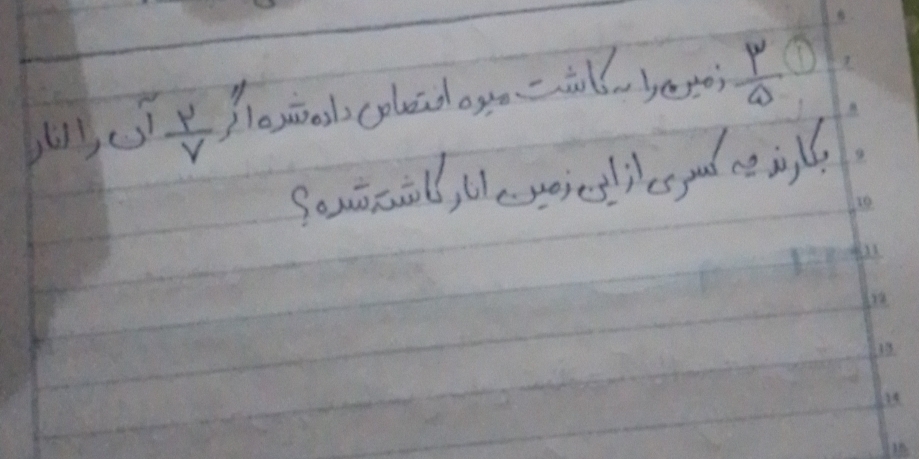 ① ۳/۵ زمین را به کاشت میوه اختصاص داده شده اگر ۲/۷ آن را انار
بکارند چه کسری از این زمین انار کاشته شده؟
8
9
10
11
12
13
14
15